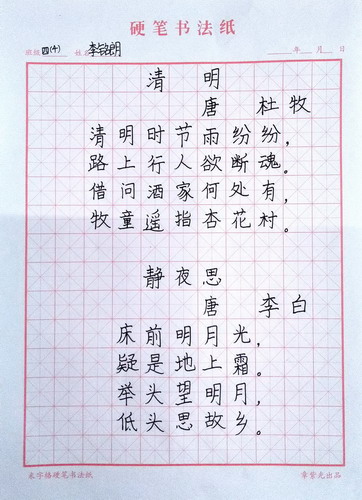 硬笔书法纸
班级 四(十) 姓名 李铭朗 年 月 日
清明
唐 杜牧
清明时节雨纷纷，
路上行人欲断魂。
借问酒家何处有，
牧童遥指杏花村。
静夜思
唐 李白
床前明月光，
疑是地上霜。
举头望明月，
低头思故乡。
米字格硬笔书法纸 章紫光出品